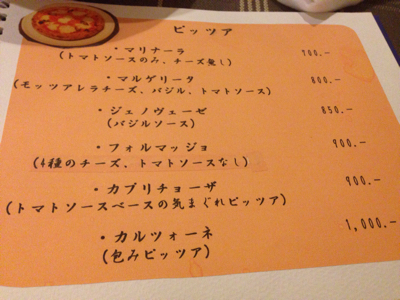 ピッツア
・マリナーラ 700.-
(トマトソースのみ、チーズ無し)
・マルゲリータ 800.-
(モッツアレラチーズ、バジル、トマトソース)
・ジェノヴェーゼ 850.-
(バジルソース)
・フォルマッジョ 900.-
(4種のチーズ、トマトソースなし)
・カプリチョーザ 900.-
(トマトソースベースの気まぐれピッツア)
・カルツォーネ 1,000.-
(包みピッツア)